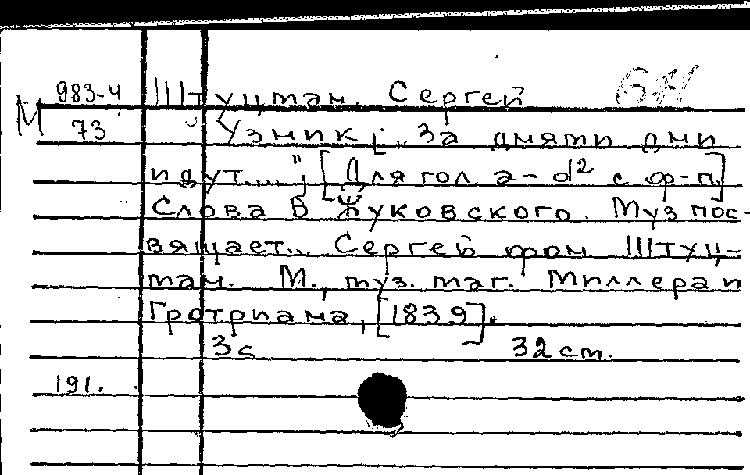 983-4 Штуцман, Сергей
М 73 Узник; "За днями дни
идут....", [Для гол. a-d² с ф-п]
Слова В. Жуковского. Муз пос-
вящает... Сергей фон Штуц-
ман. М., муз. маг. Миллера и
Гротриана, [1839].
3с 32 см.
191.